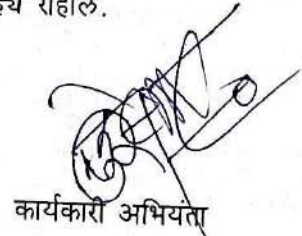 राहील.
कार्यकारी अभियंता